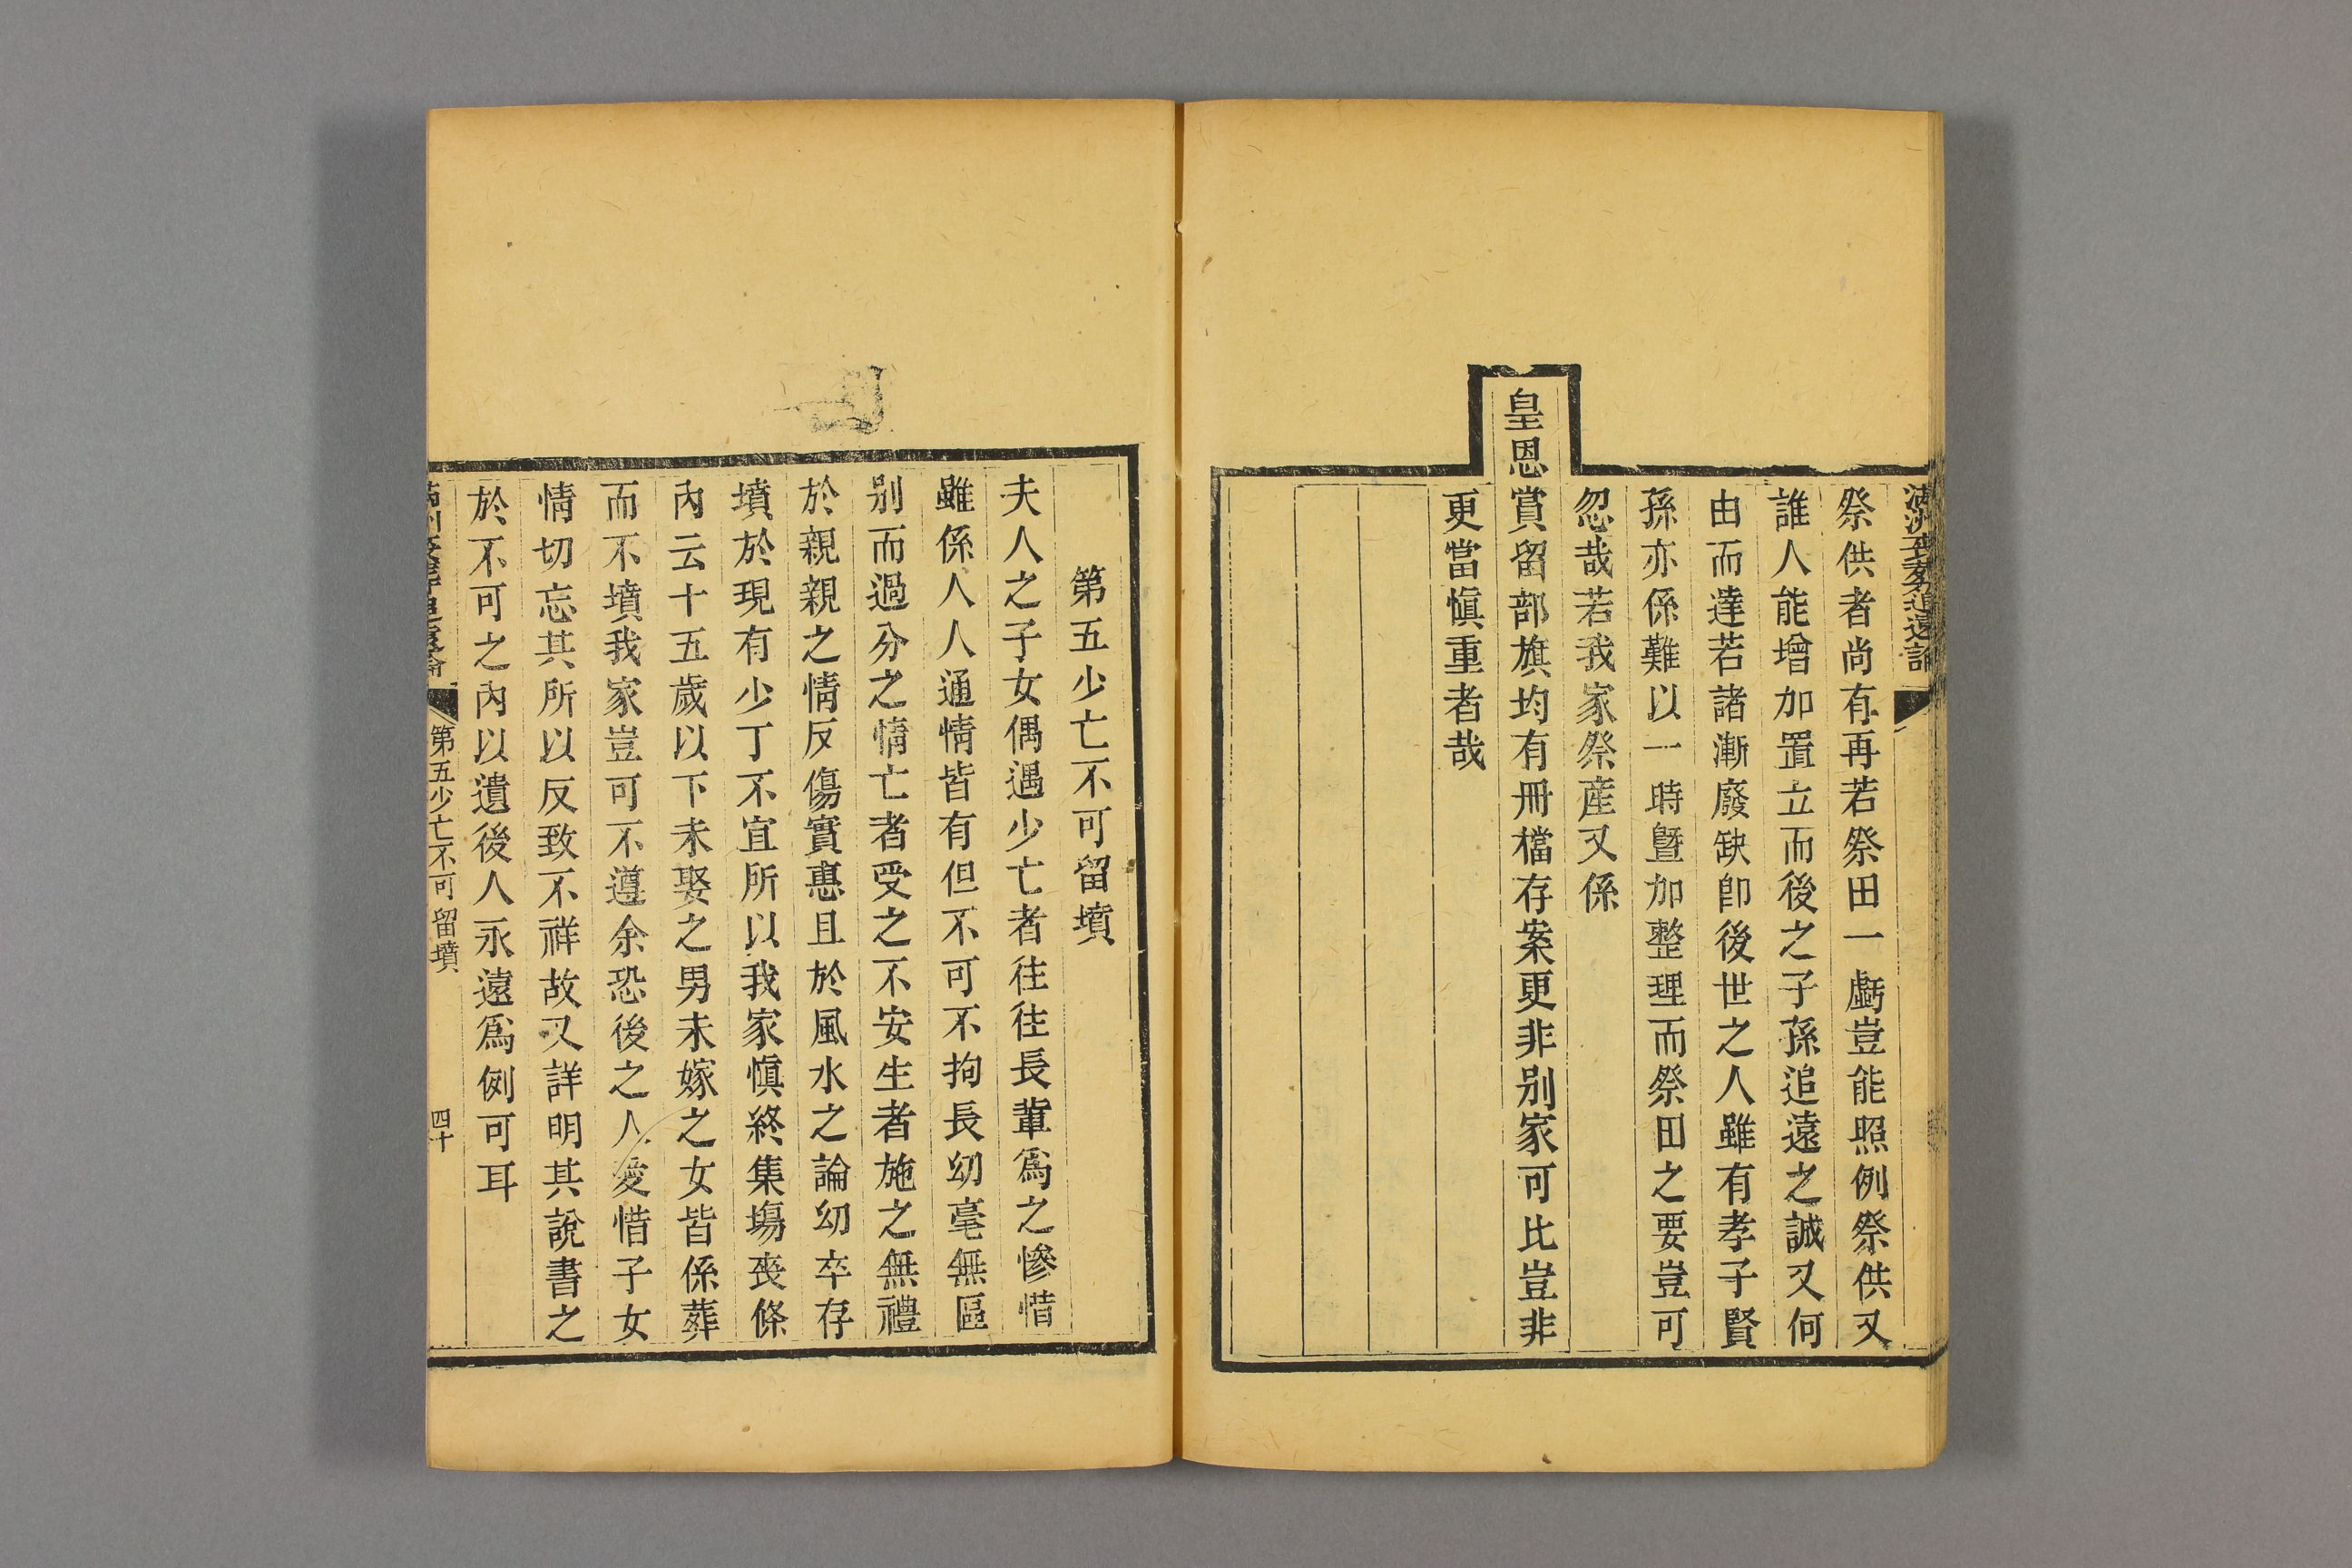 祭供者尚有再若祭田一虧豈能照例祭供又
誰人能增加置立而後之子孫追遠之誠又何
由而達若諸漸廢缺卽後世之人雖有孝子賢
孫亦係難以一時曁加整理而祭田之要豈可
忽哉若我家祭産又係
皇恩賞留部旗均有冊檔存案更非别家可比豈非
更當愼重者哉
第五少亡不可留墳
夫人之子女偶遇少亡者往往長輩爲之慘惜
雖係人人通情皆有但不可不拘長幼毫無區
别而過分之情亡者受之不安生者施之無禮
於親親之情反傷實惠且於風水之論幼卒存
墳於現有少丁不宜所以我家愼終集塲喪條
內云十五歲以下未娶之男未嫁之女皆係葬
而不墳我家豈可不遵余恐後之人愛惜子女
情切忘其所以反致不祥故又詳明其說書之
於不可之內以遺後人永遠爲例可耳
第五少亡不可留墳
四十